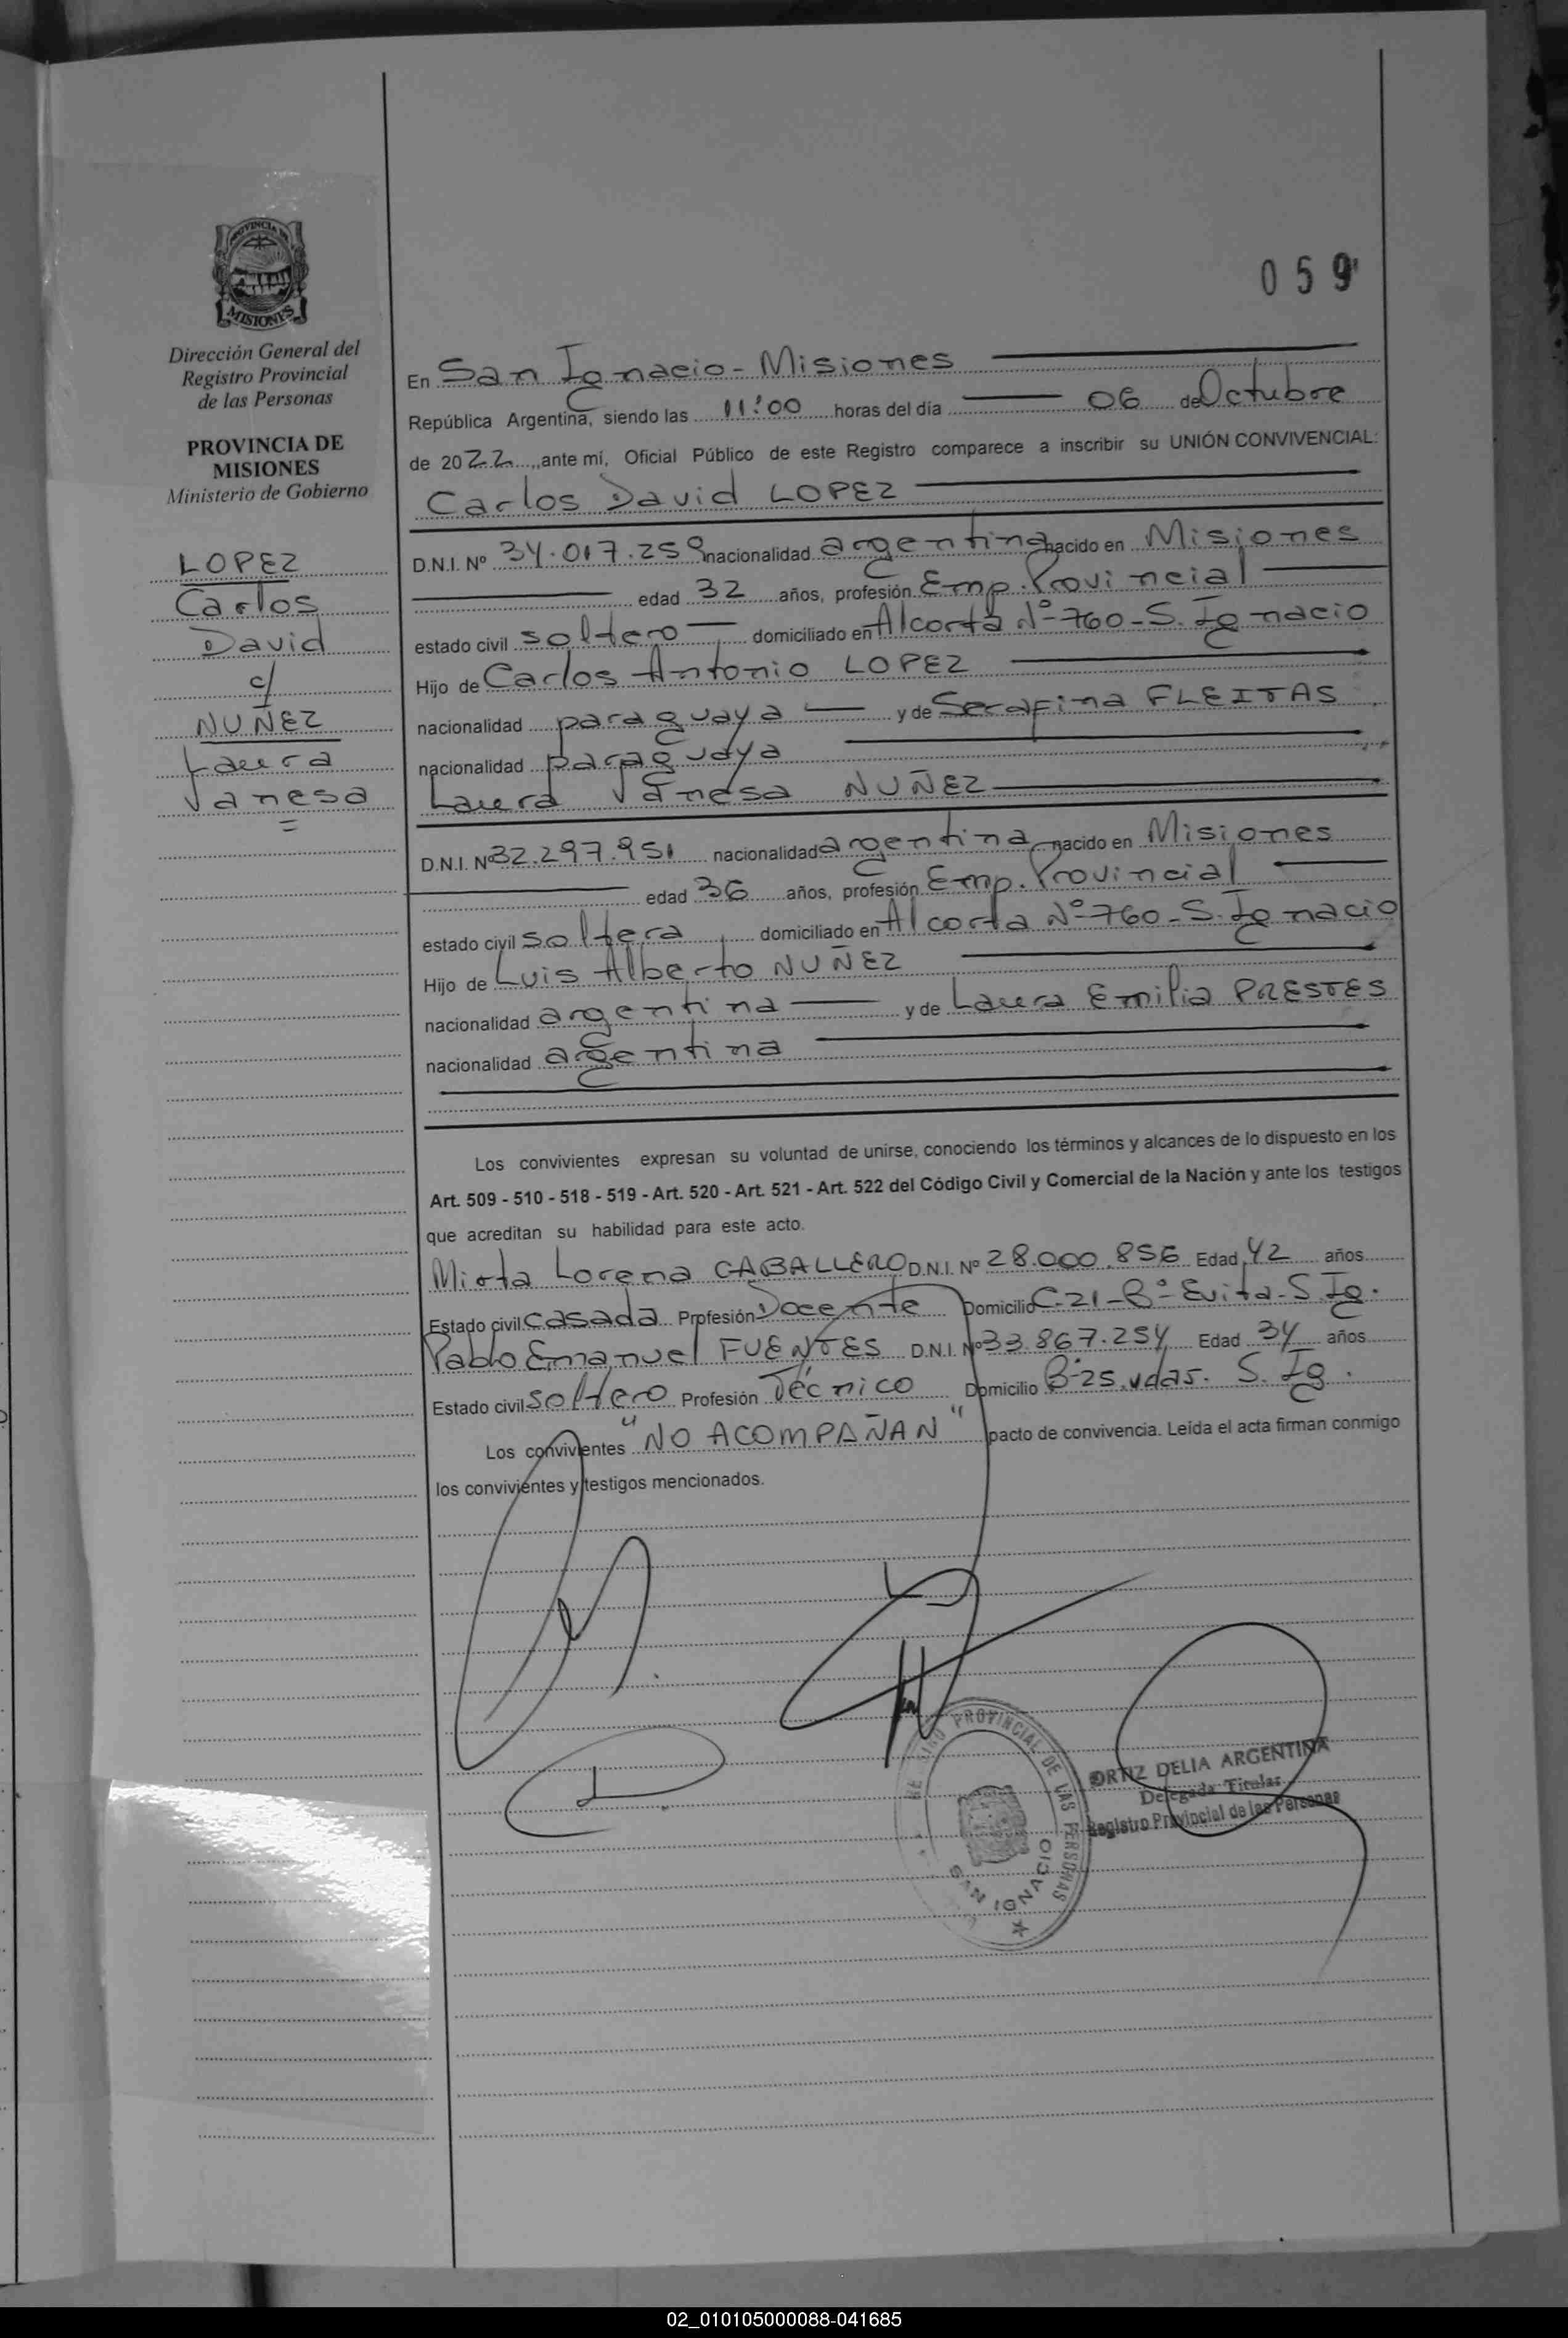 PROVINCIA DE
MISIONES
Dirección General del
Registro Provincial
de las Personas
PROVINCIA DE
MISIONES
Ministerio de Gobierno
LOPEZ
Carlos
David
c/
NUÑEZ
Laura
Vanesa
059
En San Ignacio - Misiones
República Argentina, siendo las 11:00 horas del día 06 de Octubre
de 2022, ante mí, Oficial Público de este Registro comparece a inscribir su UNIÓN CONVIVENCIAL:
Carlos David LOPEZ
D.N.I. Nº 34.017.259 nacionalidad argentina nacido en Misiones
edad 32 años, profesión Emp. Provincial
estado civil soltero domiciliado en Alcorta Nº 760 - S. Ignacio
Hijo de Carlos Antonio LOPEZ
nacionalidad paraguaya y de Serafina FLEITAS
nacionalidad paraguaya
Laura Vanesa NUÑEZ
D.N.I. Nº 32.297.951 nacionalidad argentina nacido en Misiones
edad 36 años, profesión Emp. Provincial
estado civil soltera, domiciliado en Alcorta Nº 760 - S. Ignacio
Hijo de Luis Alberto NUÑEZ
nacionalidad argentina y de Laura Emilia PRESTES
nacionalidad argentina
Los convivientes expresan su voluntad de unirse, conociendo los términos y alcances de lo dispuesto en los
Art. 509 - 510 - 518 - 519 - Art. 520 - Art. 521 - Art. 522 del Código Civil y Comercial de la Nación y ante los testigos
que acreditan su habilidad para este acto.
Mirta Lorena CABALLERO D.N.I. Nº 28.000.856 Edad 42 años
Estado civil casada Profesión Docente Domicilio C-21-Bº Evita - S. Ig.
Pablo Emanuel FUENTES D.N.I. Nº 33.867.254 Edad 34 años
Estado civil soltero Profesión Técnico Domicilio Bº 25 vdas. S. Ig.
Los convivientes "NO ACOMPAÑAN" pacto de convivencia. Leída el acta firman conmigo
los convivientes y testigos mencionados.
REGISTRO PROVINCIAL DE LAS PERSONAS
SAN IGNACIO
ORTIZ DELIA ARGENTINA
Delegada Titular
Registro Provincial de las Personas
02_010105000088-041685